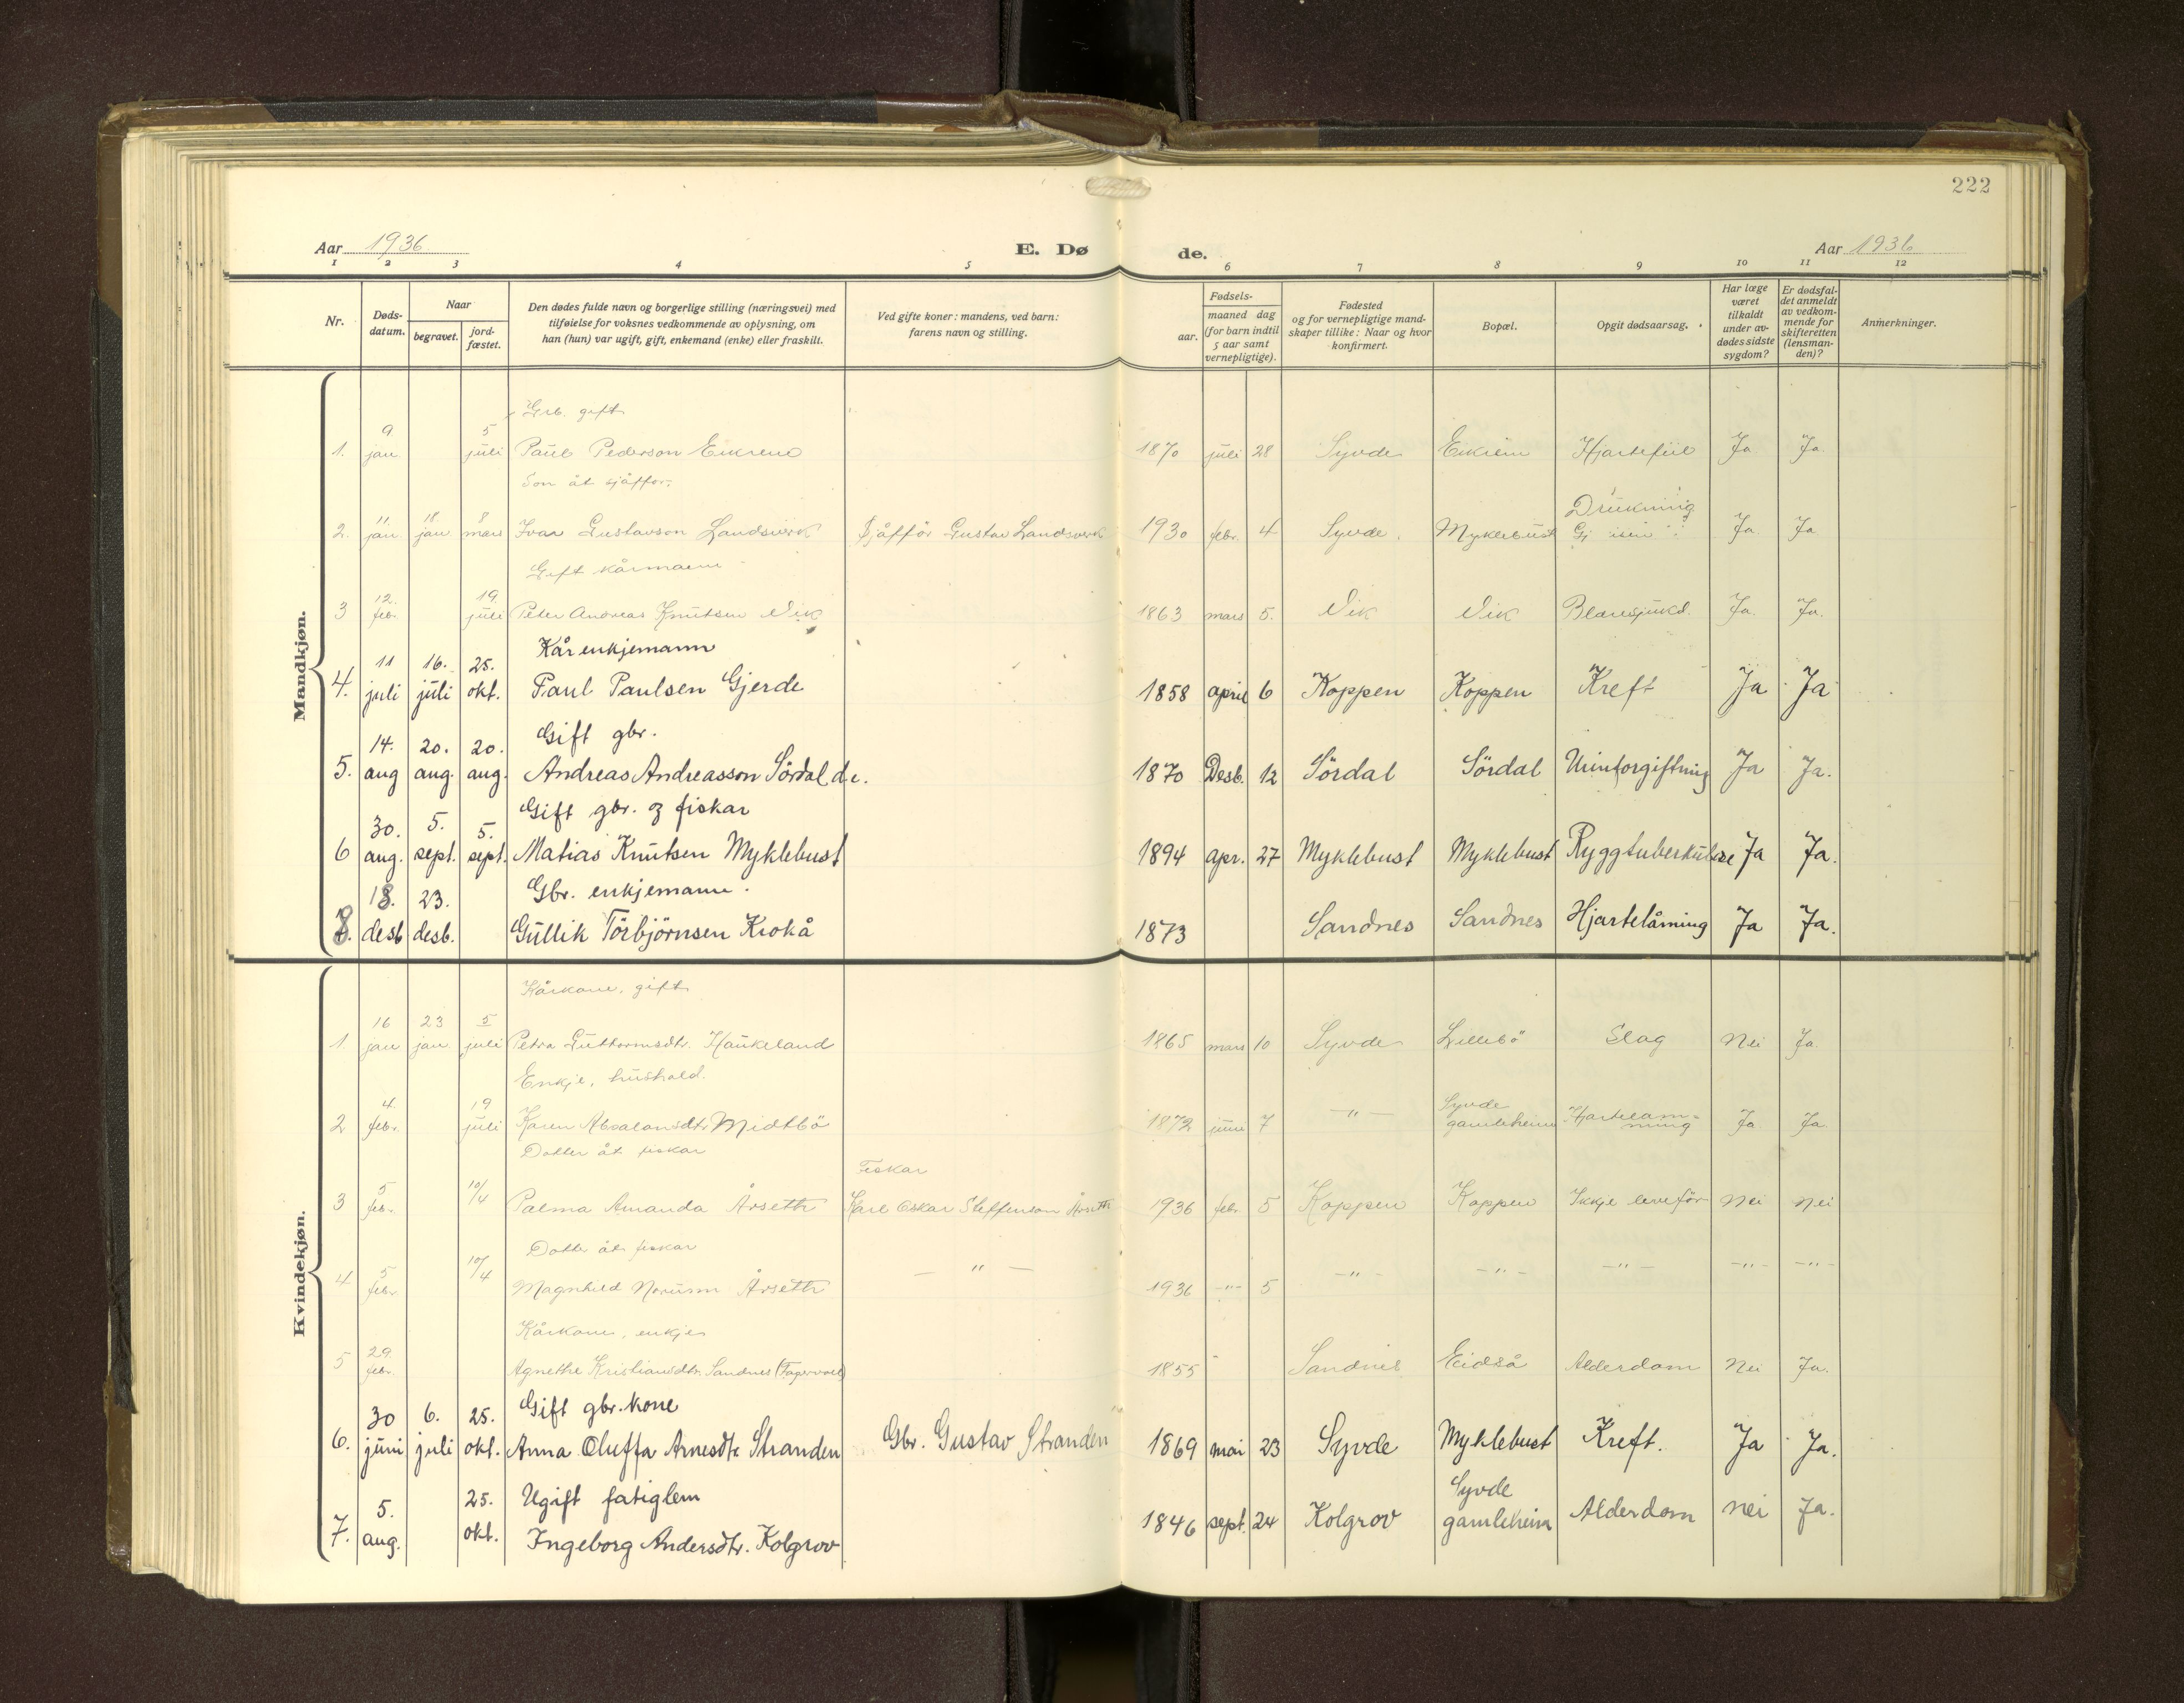 222
Aar 1936
E. Dø
de.
Aar 1936
1 2 3 4 5 6 7 8 9 10 11 12
Nr.
Døds-
datum.
Naar
begravet.
jord-
fæstet.
Den dødes fulde navn og borgerlige stilling (næringsvei) med
tilføielse for voksnes vedkommende av oplysning, om
han (hun) var ugift, gift, enkemand (enke) eller fraskilt.
Ved gifte koner: mandens, ved barn:
farens navn og stilling.
Fødsels-
aar.
maaned dag
(for barn indtil
5 aar samt
vernepligtige).
Fødested
og for vernepligtige mand-
skaper tillike: Naar og hvor
konfirmert.
Bopæl.
Opgit dødsaarsag.
Har læge
været
tilkaldt
under av-
dødes sidste
sygdom?
Er dødsfal-
det anmeldt
av vedkom-
mende for
skifteretten
(lensman-
den)?
Anmerkninger.
Mandkjøn.
Grb. gift
9 5
1. jan juli Paul Pederson Eikrem 1870 juli 28 Syvde Eikrem Hjartefeil Ja Ja.
Son åt sjåffør
11. 18. 8 Drukning
2. jan. jan mars Ivar Gustavson Landsverk Sjåffør Gustav Landsverk 1930 febr. 4 Syvde. Myklebust Gj isen Ja Ja
Gift kårmann
12. 19.
3 febr. juli Peter Andreas Knutsen Vik 1863 mars 5. Vik Vik Blæresjukd. Ja. Ja.
Kårenkjemann
11 16. 25.
4. juli juli okt. Paul Paulsen Gjerde 1858 april 6 Koppen Koppen Kreft Ja Ja
Gift gbr.
14. 20. 20.
5. aug aug. aug. Andreas Andreasson Sördal d.e. 1870 Desb. 12 Sördal Sördal Urinforgiftning Ja Ja.
Gift gbr. og fiskar
30. 5. 5.
6 aug. sept. sept. Matias Knutsen Myklebust 1894 apr. 27 Myklebust Myklebust Ryggtuberkulose Ja Ja.
Gbr. enkjemann.
18. 23.
desb desb. Gullik Torbjörnsen Krokå 1873 Sandnes Sandnes Hjartelåming Ja Ja.
Kvindekjøn.
Kårkone, gift
16 23 5
1 jan jan. juli Petra Guttormsdtr. Haukeland 1865 mars 10 Syvde Lillebö Slag Nei Ja.
Enkje, hushald.
4. 19 Syvde Hjartelam-
2 febr. juli Karen Absalonsdtr Midtbö 1872 juni 7 — " — gamleheim ning Ja. Ja.
Dotter åt fiskar
Fiskar
5 10/4
3 febr. Palma Amanda Årseth Karl Oskar Steffenson Årseth 1936 febr. 5 Koppen Koppen Ikkje levefør Nei Nei
Dotter åt fiskar
5 10/4 — " — — " — — " — — " — — " — — " —
4 febr Magnhild Norunn Årseth 1936 — " — 5
Kårkone, enkje
29
5 febr. Agnethe Kristiansdtr. Sandnes (Fagervoll) 1855 Sandnes Eidså Alderdom Nei Ja.
Gift gbr.kone
30 6. 25.
6. juni juli okt. Anna Oluffa Arnesdtr Stranden Gbr. Gustav Stranden 1869 mai 23 Syvde Myklebust Kreft. Ja Ja.
Ugift fatiglem
5. 25. Syvde
7. aug. okt. Ingeborg Andersdtr. Kolgrov 1846 sept. 24 Kolgrov gamleheim Alderdom nei Ja.